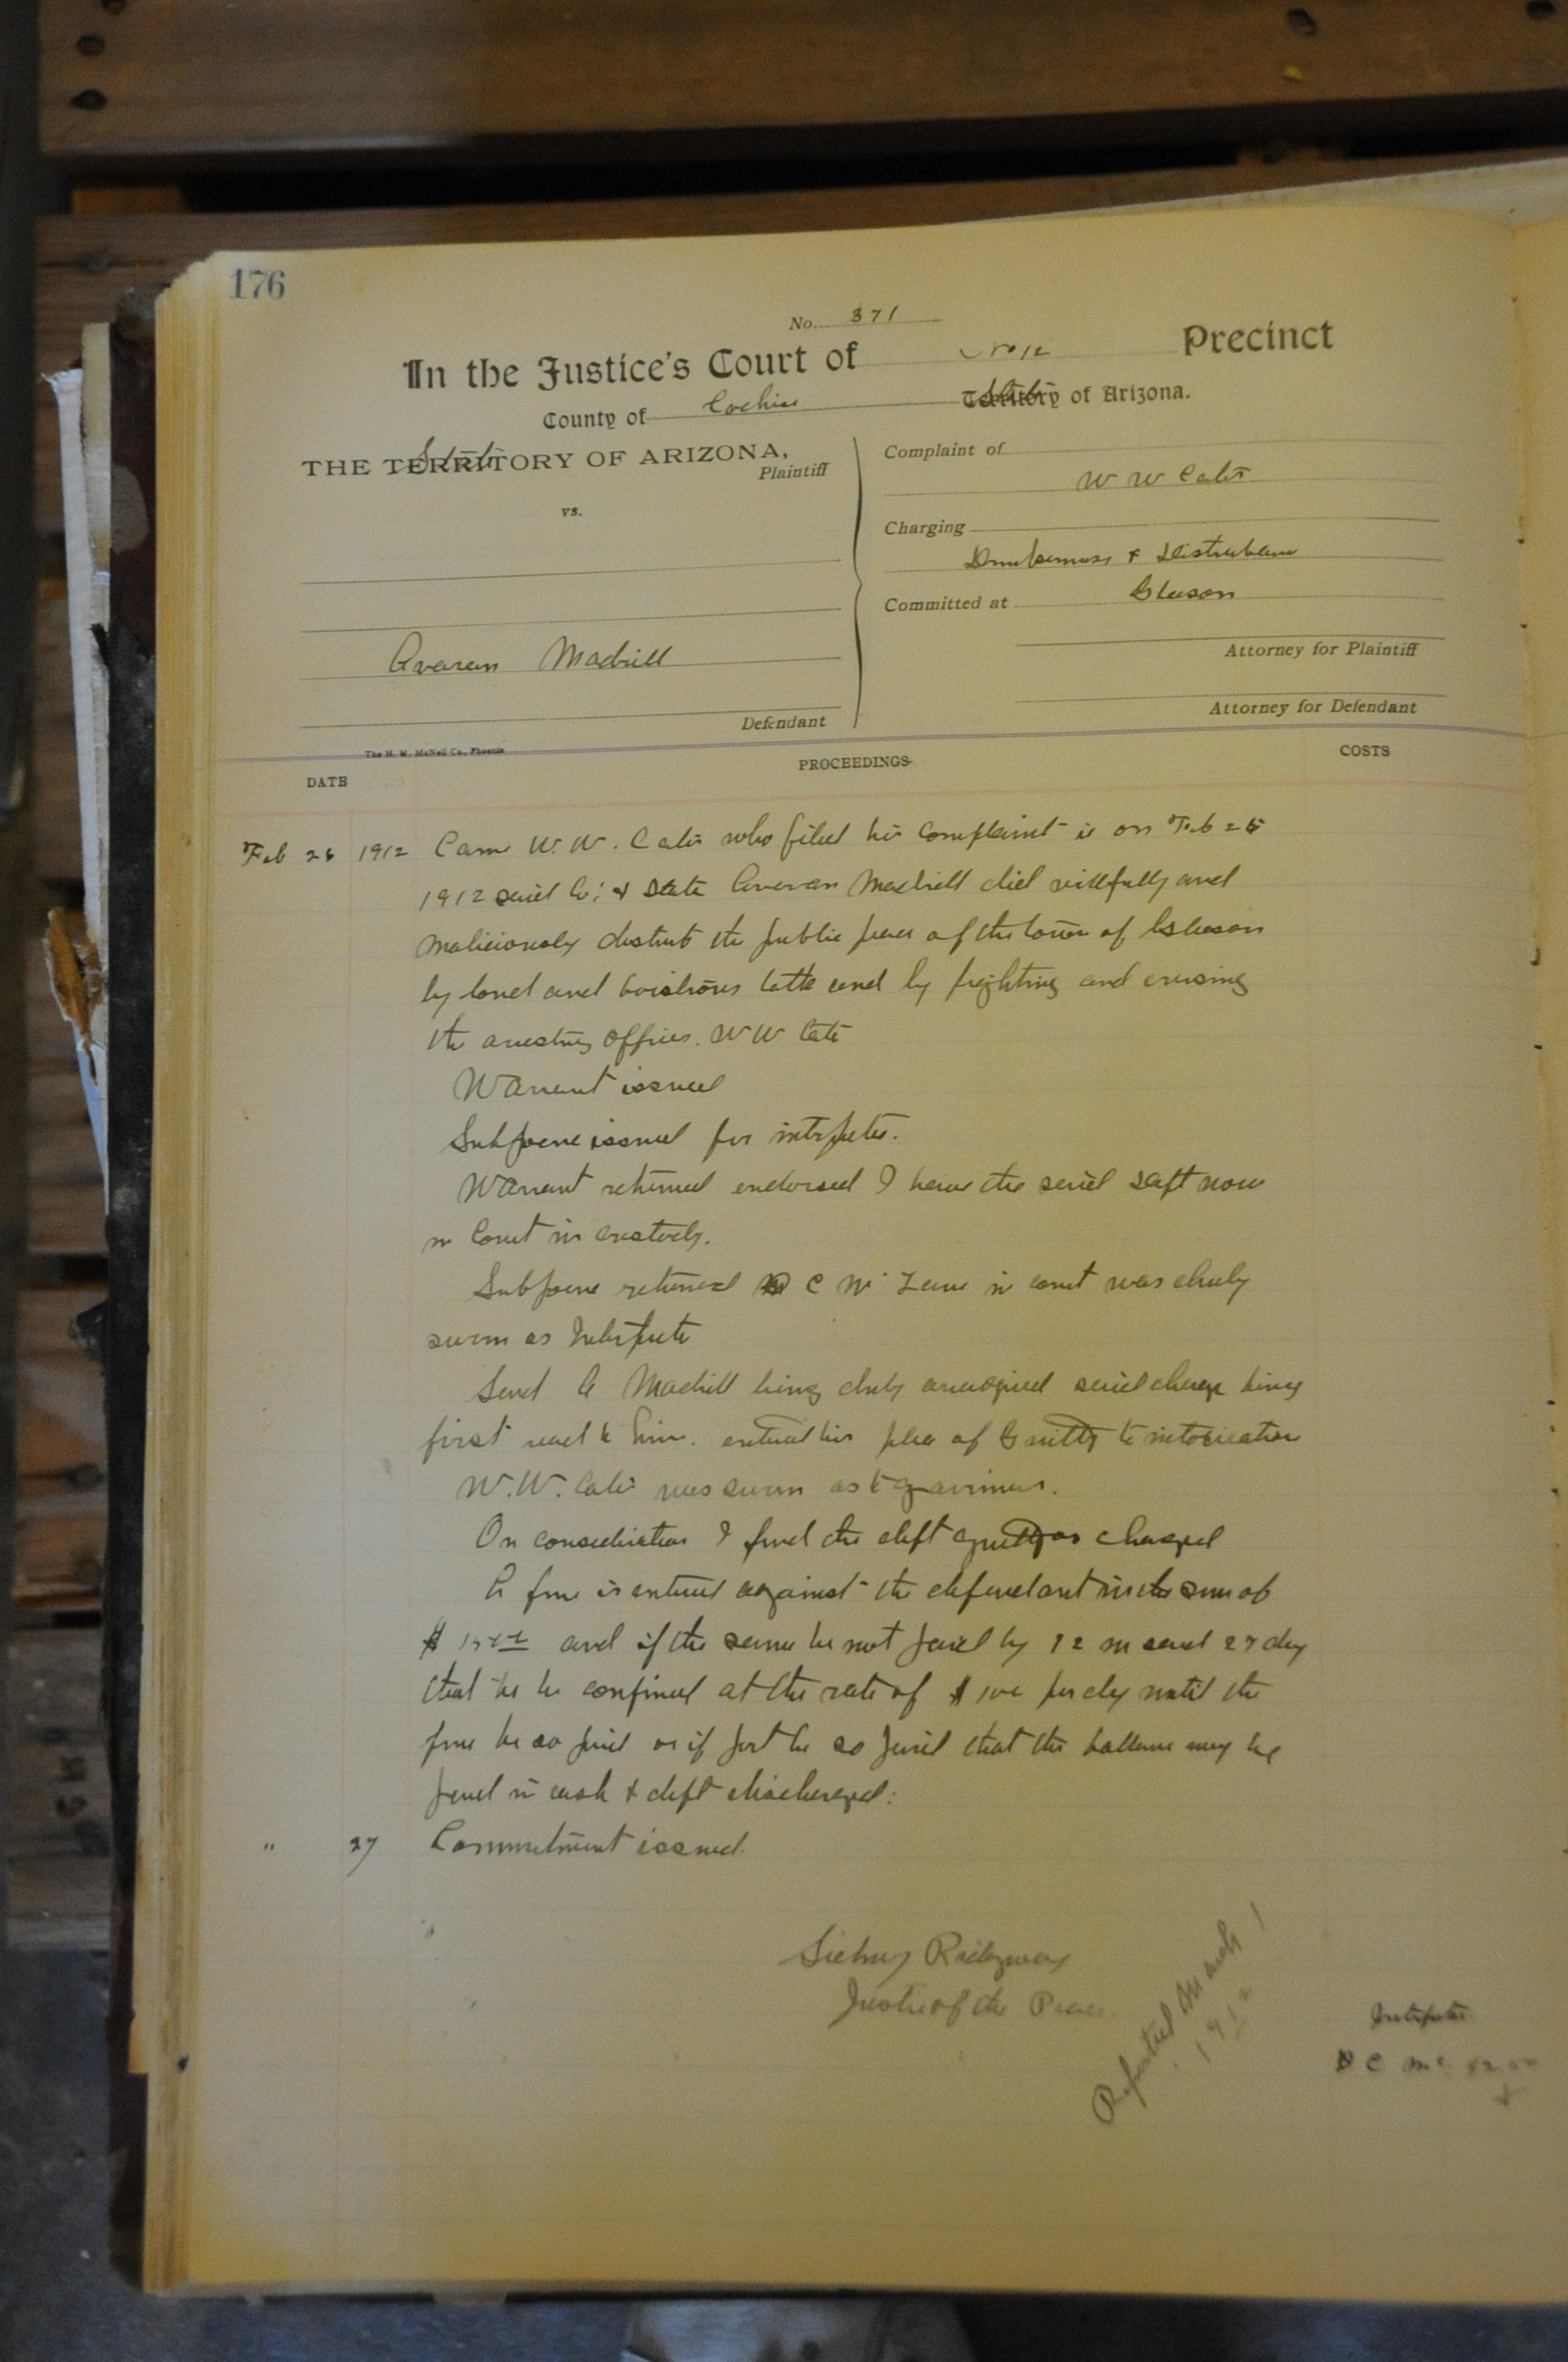 176
No. 371
In the Justice's Court of No 12 Precinct
County of Cochise State Territory of Arizona.
State
THE TERRITORY OF ARIZONA,
Plaintiff
vs.
Madrill
Defendant
Complaint of
W W Cate
Charging
Drunkenness & Disturbance
Committed at Gleason
Attorney for Plaintiff
Attorney for Defendant
The H. W. McNeil Co., Phoenix
DATE PROCEEDINGS COSTS
Feb 26 1912 Came W. W. Cate who filed his complaint is on Feb 25
1912 said Co; & State Madrill did willfully and
maliciously disturb the public peace of the town of Gleason
by loud and boistrous talk and by fighting and cursing
the arresting officer. W W Cate
Warrant issued
Subpoene issued for
Warrant returned endorsed I have the said deft now
in Court in custody.
Subpoene returned C Mc in court was duly
sworn as
Said A Madrill being duly arraigned said charge being
first read to him. entered his plea of Guilty to intoxication
W. W. Cate was sworn as to
On consideration I find the deft guilty as charged
A fine is entered against the defendant in the sum of
$ and if the same be not paid by 12 m said 27 day
that he be confined at the rate of $ 1oo per day until the
fine be so paid or if part be so paid that the ballance may be
paid in cash & deft discharged:
" 27 Commitment issued.
Sidney Ridgway
Justice of the Peace
Reported March 1
1912
C Mc